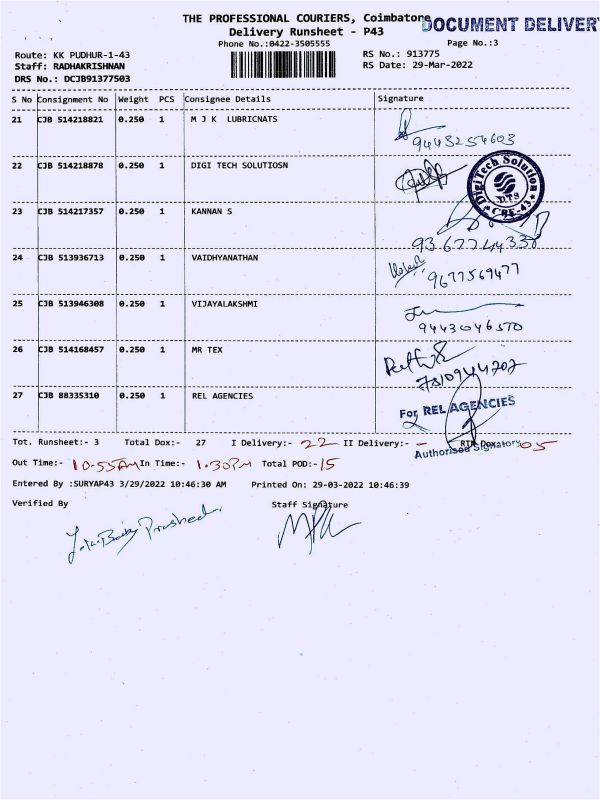 THE PROFESSIONAL COURIERS, Coimbatore
DOCUMENT DELIVER
Delivery Runsheet - P43
Phone No.:0422-3505555
Page No.:3
Route: KK PUDHUR-1-43
RS No.: 913775
Staff: RADHAKRISHNAN
RS Date: 29-Mar-2022
DRS No.: DCJB91377503
S No Consignment No Weight PCS Consignee Details Signature
21 CJB 514218821 0.250 1 M J K LUBRICNATS
9443254603
22 CJB 514218878 0.250 1 DIGI TECH SOLUTIOSN
DigiTech Solution
DTS
CBE-43
23 CJB 514217357 0.250 1 KANNAN S
9367744338
24 CJB 513936713 0.250 1 VAIDHYANATHAN
9677569477
25 CJB 513946308 0.250 1 VIJAYALAKSHMI
9443046510
26 CJB 514168457 0.250 1 MR TEX
7810944707
27 CJB 88335310 0.250 1 REL AGENCIES
For REL AGENCIES
Tot. Runsheet:- 3 Total Dox:- 27 I Delivery:- 22 II Delivery:- - RTN Dox:- 05
Authorised Signatory
Out Time:- 10.55AM In Time:- 1.30PM Total POD:- 15
Entered By :SURYAP43 3/29/2022 10:46:30 AM Printed On: 29-03-2022 10:46:39
Verified By Staff Signature